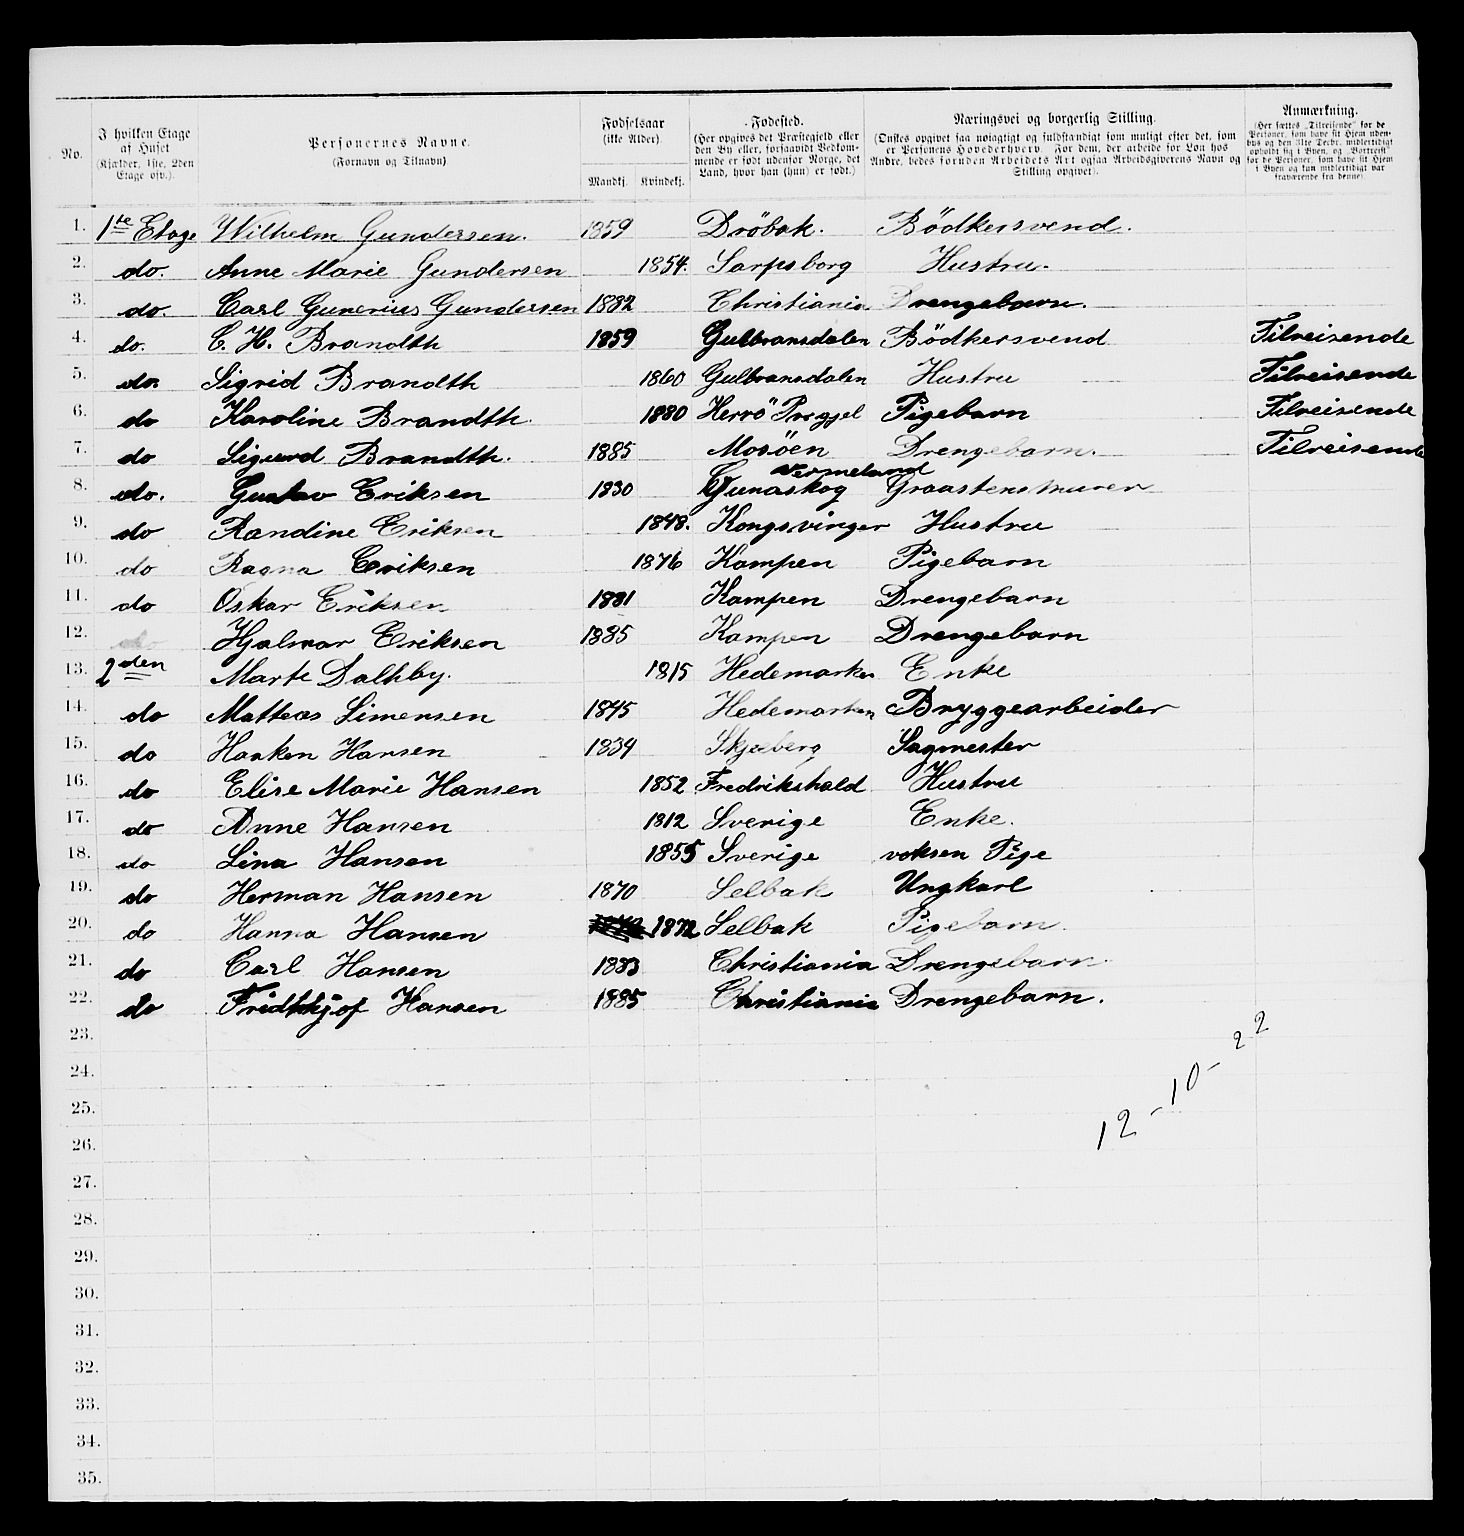 No. | I hvilken Etage af Huset (Kjælder, 1ste, 2den Etage osv.). | Personernes Navne. (Fornavn og Tilnavn) | Fødselsaar (ikke Alder). Mandkj. Kvindekj. | Fødested. (Her opgives det Præstegjeld eller den By eller, forsaavidt Vedkommende er født udenfor Norge, det Land, hvor han (hun) er født.) | Næringsvei og borgerlig Stilling. (Ønskes opgivet saa nøiagtigt og fuldstændigt som muligt efter det, som er Personens Hovederhverv. For dem, der arbeide for Løn hos Andre, bedes foruden Arbeidets Art ogsaa Arbeidsgiverens Navn og Stilling opgivet). | Anmærkning. (Her sættes „Tilreisende" for de Personer, som have sit Hjem udenbys og den 31te Decbr. midlertidigt ophold sig i Byen, og „Bortreist" for de Personer, som have sit Hjem i Byen og kun midlertidigt var fraværende fra denne).
1. 1ste Etage Wilhelm Gundersen. 1859 Dröbak. Bödkersvend.
2. do. Anne Marie Gundersen 1854. Sarpsborg Hustru.
3. do. Carl Gunerius Gundersen 1882 Christiania Drengebarn.
4. do. C. H. Brandth 1859 Gulbransdalen Bödkersvend Tilreisende
5. do. Sigrid Brandth 1860 Gulbransdalen Hustru Tilreisende
6. do Karoline Brandth. 1880 Herrö Pregjel Pigebarn Tilreisende
7. do Sigurd Brandth. 1885 Mosöen Drengebarn. Tilreisende
8. do. Gustav Eriksen 1830 Gunaskog Vermeland Graastensmurer
9. do Randine Eriksen 1848. Kongsvinger Hustru
10. do Ragna Eriksen 1876 Kampen Pigebarn
11. do Oskar Eriksen 1881 Kampen Drengebarn
12. do Hjalmar Eriksen 1885 Kampen Drengebarn
13. 2den Marte Dalhby. 1815 Hedemarken Enke
14. do Matteas Simensen 1845 Hedemarken Bryggearbeider
15. do Haaken Hansen 1834 Skjeberg Sagmester
16. do Elise Marie Hansen 1852 Fredrikshald Hustru
17. do Anne Hansen 1812 Sverige Enke.
18. do Lina Hansen 1855 Sverige voksen Pige
19. do Herman Hansen 1870 Selbak Ungkarl
20. do Hanna Hansen 1872 Selbak Pigebarn.
21. do Carl Hansen 1883 Christiania Drengebarn
22. do Fridthjof Hansen 1885 Christiania Drengebarn.
23.
12 - 10 - 22
24.
25.
26.
27.
28.
29.
30.
31.
32.
33.
34.
35.